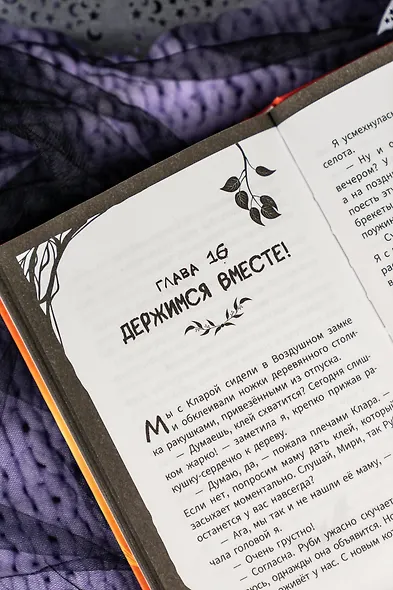 ГЛАВА 16
ДЕРЖИМСЯ ВМЕСТЕ!
Мы с Кларой сидели в Воздушном замке
и обклеивали ножки деревянного столи-
ка ракушками, привезёнными из отпуска.
— Думаешь, клей схватится? Сегодня слиш-
ком жарко! — заметила я, крепко прижав ра-
кушку-сердечко к дереву.
— Думаю, да, — пожала плечами Клара. —
Если нет, попросим маму дать клей, который
засыхает моментально. Слушай, Мири, так Ру
останется у вас навсегда?
— Ага, мы так и не нашли её маму, —
чала головой я.
— Очень грустно!
— Согласна. Руби ужасно скучает
юсь, однажды она объявится. Но
живёт у нас. С новым ко
Я усмехнулась
селота.
— Ну и о
вечером? у
а на поздн
поесть эт
брекеты
поужин
Су
Я с
рас
в